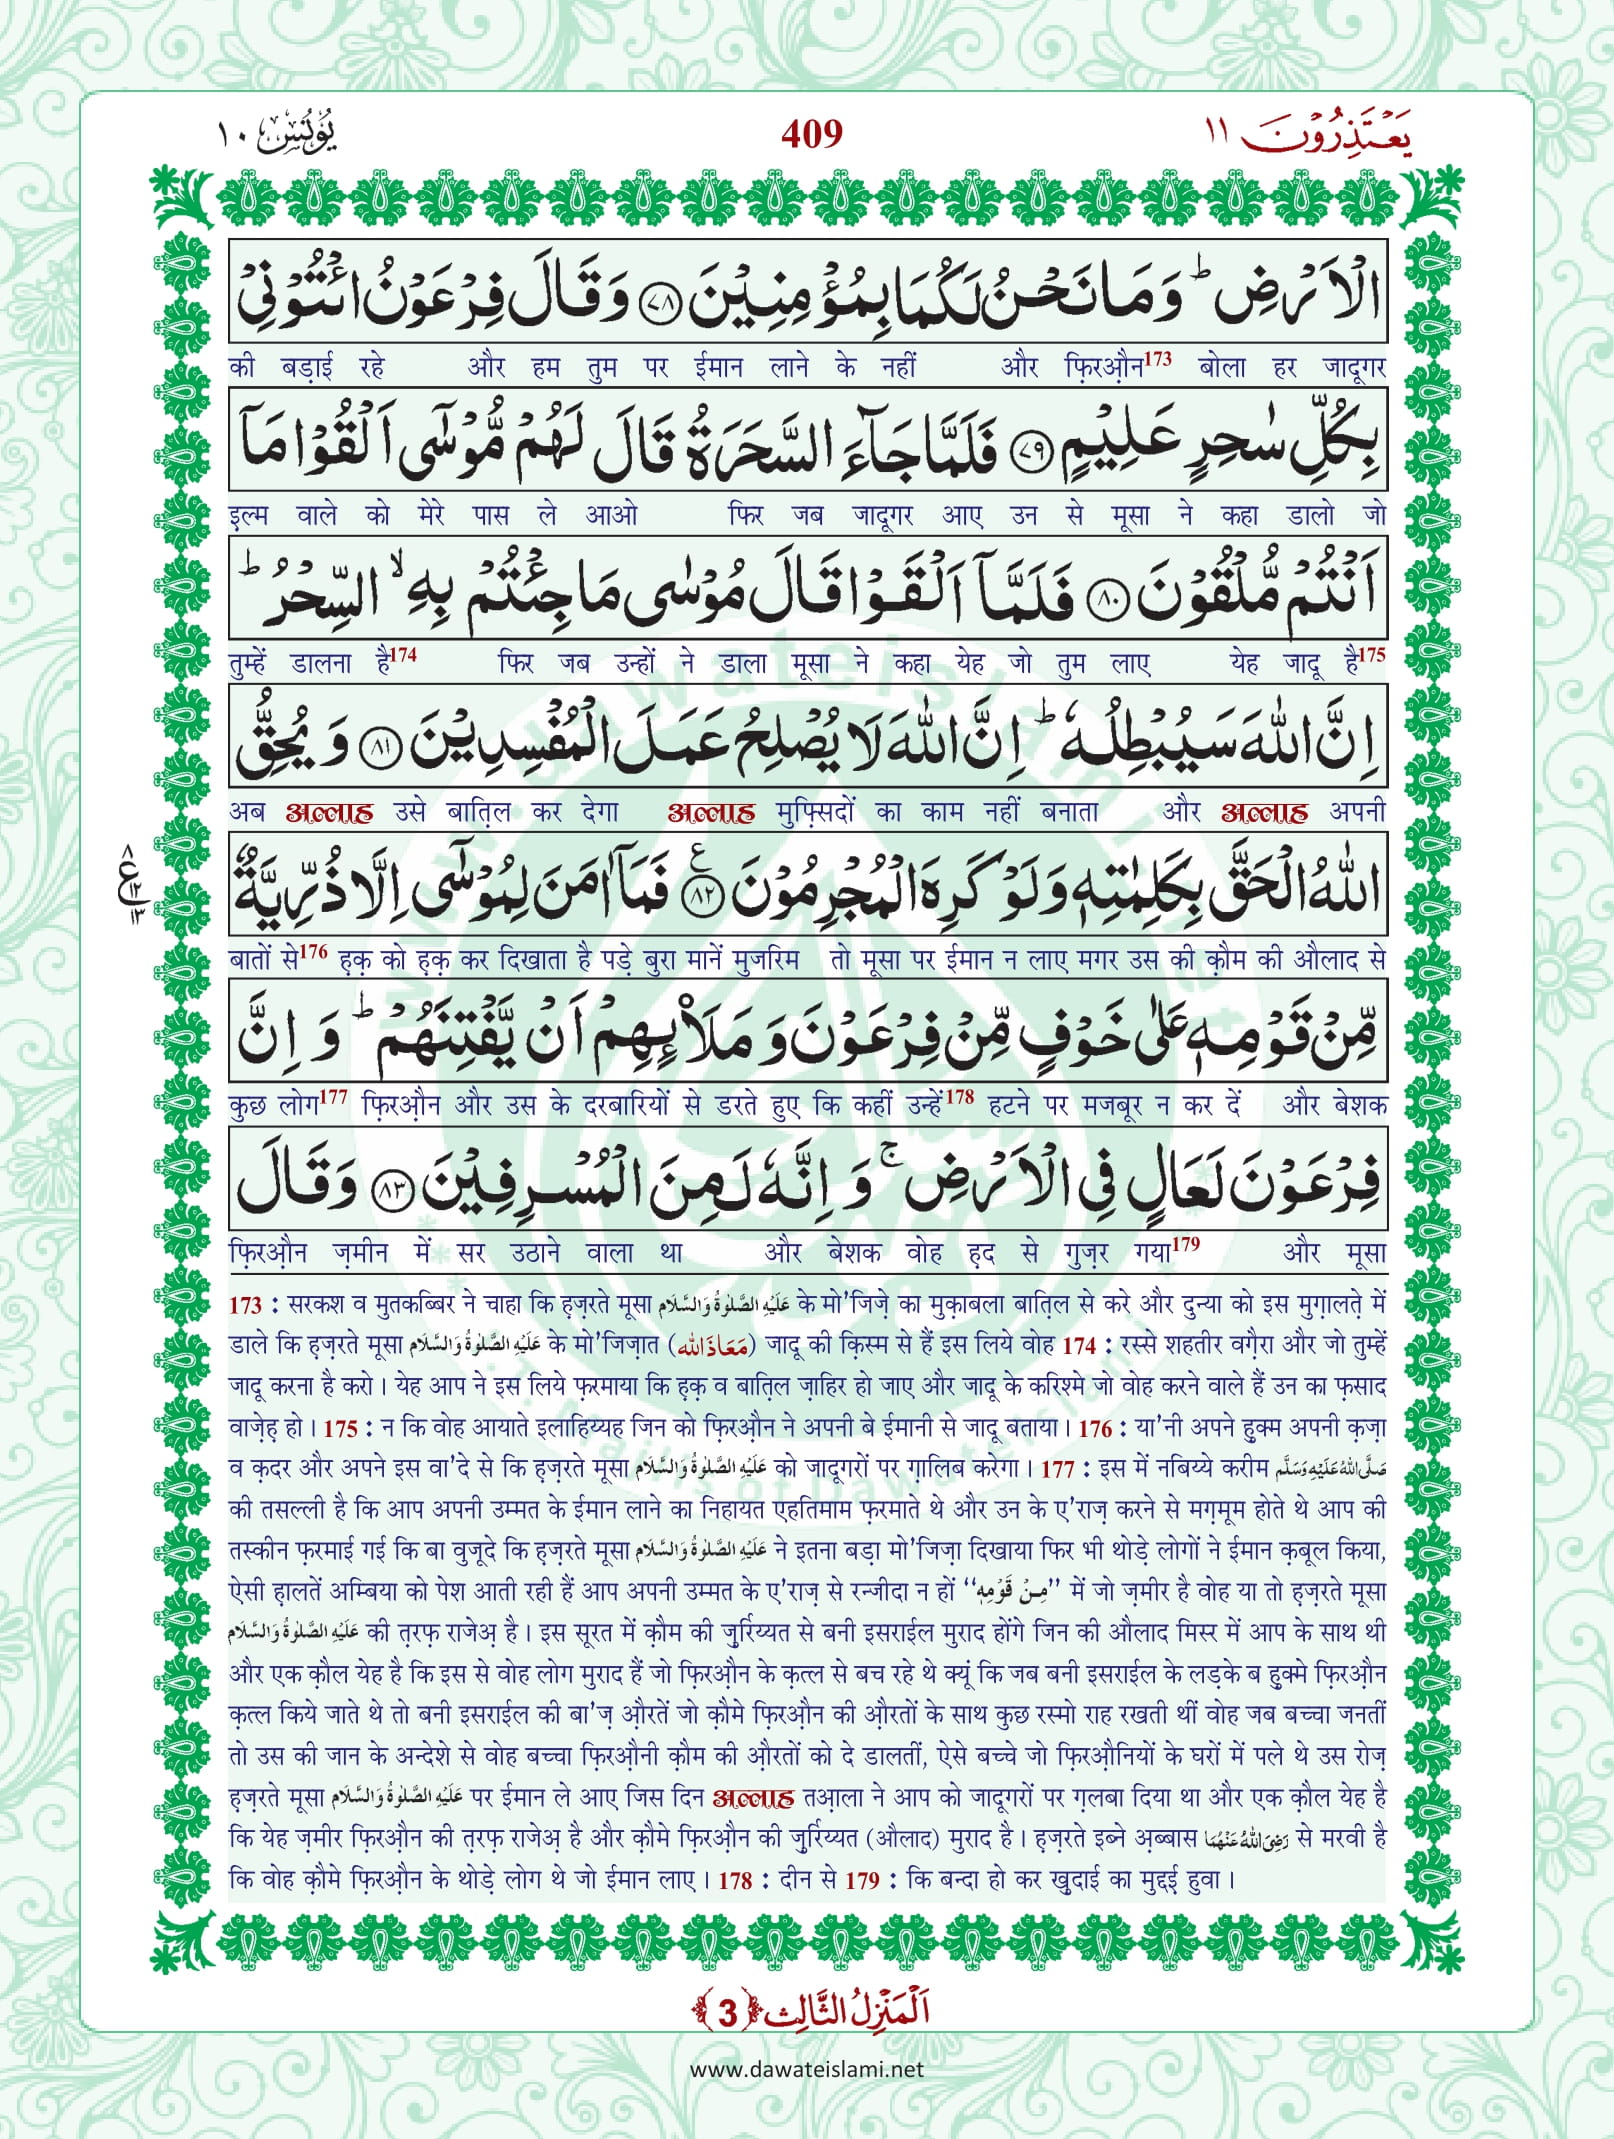 يَعْتَذِرُوْنَ ١١
409
يُوْنُس ١٠
الْاَرْضِ ؕ وَمَا نَحْنُ لَكُمَا بِمُؤْمِنِيْنَ ﴿۷۸﴾ وَقَالَ فِرْعَوْنُ ائْتُوْنِيْ
की बड़ाई रहे और हम तुम पर ईमान लाने के नहीं और फ़िरऔ़न173 बोला हर जादूगर
بِكُلِّ سٰحِرٍ عَلِيْمٍ ﴿۷۹﴾ فَلَمَّا جَآءَ السَّحَرَةُ قَالَ لَهُمْ مُّوْسٰۤى اَلْقُوْا مَاۤ
इल्म वाले को मेरे पास ले आओ फिर जब जादूगर आए उन से मूसा ने कहा डालो जो
اَنْتُمْ مُّلْقُوْنَ ﴿۸۰﴾ فَلَمَّاۤ اَلْقَوْا قَالَ مُوْسٰى مَا جِئْتُمْ بِهِ ۙ السِّحْرُ ؕ
तुम्हें डालना है174 फिर जब उन्हों ने डाला मूसा ने कहा येह जो तुम लाए येह जादू है175
اِنَّ اللّٰهَ سَيُبْطِلُهٗ ؕ اِنَّ اللّٰهَ لَا يُصْلِحُ عَمَلَ الْمُفْسِدِيْنَ ﴿۸۱﴾ وَيُحِقُّ
अब अल्लाह उसे बाति़ल कर देगा अल्लाह मुफ़्सिदों का काम नहीं बनाता और अल्लाह अपनी
اللّٰهُ الْحَقَّ بِكَلِمٰتِهٖ وَلَوْ كَرِهَ الْمُجْرِمُوْنَ ﴿۸۲﴾ ع فَمَاۤ اٰمَنَ لِمُوْسٰۤى اِلَّا ذُرِّيَّةٌ
٨ ع ١٢ ١٣
बातों से176 ह़क़ को ह़क़ कर दिखाता है पड़े बुरा मानें मुजरिम तो मूसा पर ईमान न लाए मगर उस की क़ौम की औलाद से
مِّنْ قَوْمِهٖ عَلٰى خَوْفٍ مِّنْ فِرْعَوْنَ وَمَلَا۟ئِهِمْ اَنْ يَّفْتِنَهُمْ ؕ وَاِنَّ
कुछ लोग177 फ़िरऔ़न और उस के दरबारियों से डरते हुए कि कहीं उन्हें178 हटने पर मजबूर न कर दें और बेशक
فِرْعَوْنَ لَعَالٍ فِي الْاَرْضِ ۚ وَاِنَّهٗ لَمِنَ الْمُسْرِفِيْنَ ﴿۸۳﴾ وَقَالَ
फ़िरऔ़न ज़मीन में सर उठाने वाला था और बेशक वोह ह़द से गुज़र गया179 और मूसा
173 : सरकश व मुतकब्बिर ने चाहा कि ह़ज़रते मूसा عَلَيْهِ الصَّلٰوةُ وَالسَّلَام के मो'जिज़े का मुक़ाबला बाति़ल से करे और दुन्या को इस मुग़ालत़े में
डाले कि ह़ज़रते मूसा عَلَيْهِ الصَّلٰوةُ وَالسَّلَام के मो'जिज़ात (مَعَاذَ اللّٰه) जादू की क़िस्म से हैं इस लिये वोह 174 : रस्से शहतीर वग़ैरा और जो तुम्हें
जादू करना है करो। येह आप ने इस लिये फ़रमाया कि ह़क़ व बाति़ल ज़ाहिर हो जाए और जादू के करिश्मे जो वोह करने वाले हैं उन का फ़साद
वाज़ेह़ हो। 175 : न कि वोह आयाते इलाहिय्यह जिन को फ़िरऔ़न ने अपनी बे ईमानी से जादू बताया। 176 : या'नी अपने हु़क्म अपनी क़ज़ा
व क़दर और अपने इस वा'दे से कि ह़ज़रते मूसा عَلَيْهِ الصَّلٰوةُ وَالسَّلَام को जादूगरों पर ग़ालिब करेगा। 177 : इस में नबिय्ये करीम صَلَّى اللّٰهُ عَلَيْهِ وَسَلَّم
की तसल्ली है कि आप अपनी उम्मत के ईमान लाने का निहायत एहतिमाम फ़रमाते थे और उन के ए'राज़ करने से मग़मूम होते थे आप की
तस्कीन फ़रमाई गई कि बा वुजूदे कि ह़ज़रते मूसा عَلَيْهِ الصَّلٰوةُ وَالسَّلَام ने इतना बड़ा मो'जिज़ा दिखाया फिर भी थोड़े लोगों ने ईमान क़बूल किया,
ऐसी ह़ालतें अम्बिया को पेश आती रही हैं आप अपनी उम्मत के ए'राज़ से रन्जीदा न हों ‘‘مِنْ قَوْمِهٖ’’ में जो ज़मीर है वोह या तो ह़ज़रते मूसा
عَلَيْهِ الصَّلٰوةُ وَالسَّلَام की त़रफ़ राजेअ़ है। इस सूरत में क़ौम की जु़र्रिय्यत से बनी इसराईल मुराद होंगे जिन की औलाद मिस्र में आप के साथ थी
और एक क़ौल येह है कि इस से वोह लोग मुराद हैं जो फ़िरऔ़न के क़त्ल से बच रहे थे क्यूं कि जब बनी इसराईल के लड़के ब हु़क्मे फ़िरऔ़न
क़त्ल किये जाते थे तो बनी इसराईल की बा'ज़ औ़रतें जो क़ौमे फ़िरऔ़न की औ़रतों के साथ कुछ रस्मो राह रखती थीं वोह जब बच्चा जनतीं
तो उस की जान के अन्देशे से वोह बच्चा फ़िरऔ़नी क़ौम की औ़रतों को दे डालतीं, ऐसे बच्चे जो फ़िरऔ़नियों के घरों में पले थे उस रोज़
ह़ज़रते मूसा عَلَيْهِ الصَّلٰوةُ وَالسَّلَام पर ईमान ले आए जिस दिन अल्लाह तआ़ला ने आप को जादूगरों पर ग़लबा दिया था और एक क़ौल येह है
कि येह ज़मीर फ़िरऔ़न की त़रफ़ राजेअ़ है और क़ौमे फ़िरऔ़न की जु़र्रिय्यत (औलाद) मुराद है। ह़ज़रते इब्ने अ़ब्बास رَضِىَ اللّٰهُ عَنْهُمَا से मरवी है
कि वोह क़ौमे फ़िरऔ़न के थोड़े लोग थे जो ईमान लाए। 178 : दीन से 179 : कि बन्दा हो कर खु़दाई का मुद्दई हुवा।
اَلْمَنْزِلُ الثَّالِث ﴿3﴾
www.dawateislami.net